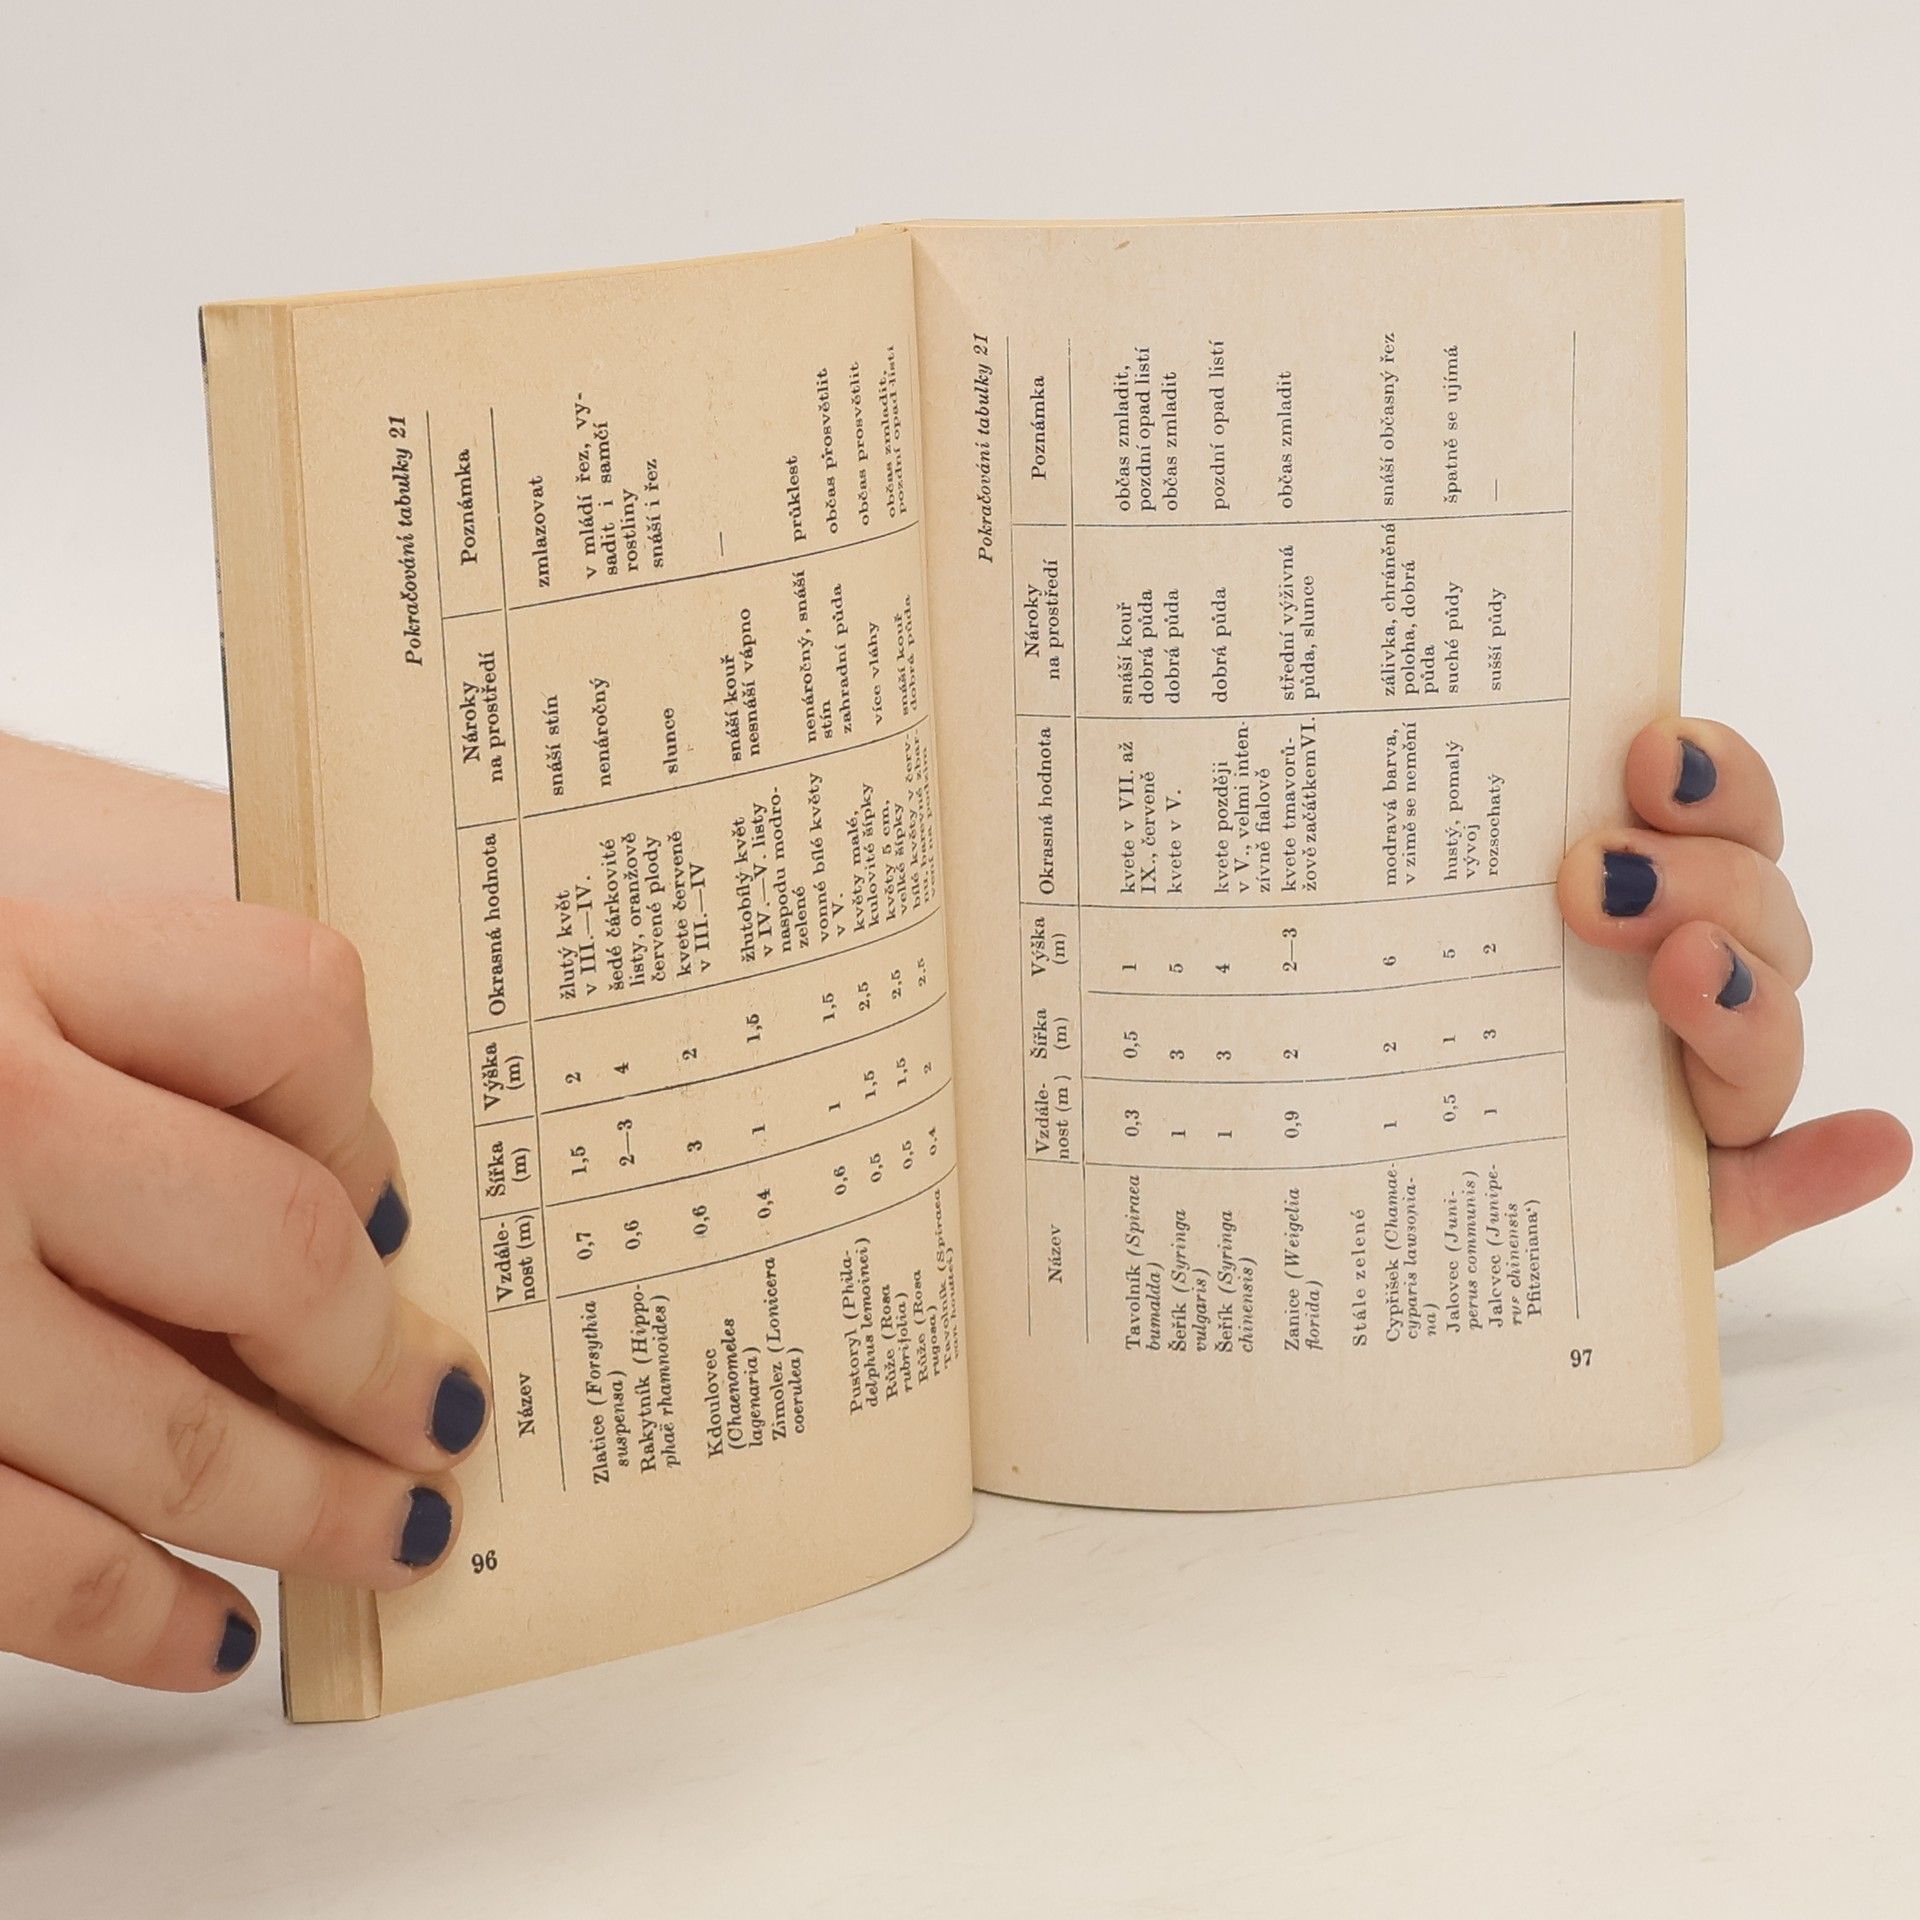 Pokračování tabulky 21
Název
Vzdále-
nost (m)
Šířka
(m)
Výška
(m)
Okrasná hodnota
Nároky
na prostředí
Poznámka
Zlatice (Forsythia
suspensa)
0,7
1,5
2
žlutý květ
v III.—IV.
snáší stín
zmlazovat
Rakytník (Hippo-
phaë rhamnoides)
0,6
2—3
4
šedé čárkovité
listy, oranžově
červené plody
nenáročný
v mládí řez, vy-
sadit i samčí
rostliny
Kdoulovec
(Chaenomeles
lagenaria)
0,6
3
2
kvete červeně
v III.—IV
slunce
snáší i řez
Zimolez (Lonicera
coerulea)
0,4
1
1,5
žlutobílý květ
v IV.—V. listy
naspodu modro-
zelené
snáší kouř
nesnáší vápno
—
Pustoryl (Phila-
delphus lemoinei)
0,6
1
1,5
vonné bílé květy
v V.
nenáročný, snáší
stín
průklest
Růže (Rosa
rubrifolia)
0,5
1,5
2,5
květy malé,
kulovité šípky
zahradní půda
občas prosvětlit
Růže (Rosa
rugosa)
0,5
1,5
2,5
květy 5 cm,
velké šípky
více vláhy
občas prosvětlit
Tavolník (Spiraea
van houttei)
0,4
2
2,5
bílé květy v červ-
nu, barevné zbar-
vení na podzim
snáší kouř
dobrá půda
občas zmladit,
pozdní opad listí
96
Pokračování tabulky 21
Název
Vzdále-
nost (m )
Šířka
(m)
Výška
(m)
Okrasná hodnota
Nároky
na prostředí
Poznámka
Tavolník (Spiraea
bumalda)
0,3
0,5
1
kvete v VII. až
IX., červeně
snáší kouř
dobrá půda
občas zmladit,
pozdní opad listí
Šeřík (Syringa
vulgaris)
1
3
5
kvete v V.
dobrá půda
občas zmladit
Šeřík (Syringa
chinensis)
1
3
4
kvete později
v V., velmi inten-
zívně fialově
dobrá půda
pozdní opad listí
Zanice (Weigelia
florida)
0,9
2
2—3
kvete tmavorů-
žově začátkem VI.
střední výživná
půda, slunce
občas zmladit
Stále zelené
Cypřišek (Chamae-
cyparis lawsonia-
na)
1
2
6
modravá barva,
v zimě se nemění
zálivka, chráněná
poloha, dobrá
půda
snáší občasný řez
Jalovec (Juni-
perus communis)
0,5
1
5
hustý, pomalý
vývoj
suché půdy
špatně se ujímá
Jalovec (Junipe-
rus chinensis
Pfitzeriana‘)
1
3
2
rozsochatý
sušší půdy
—
97